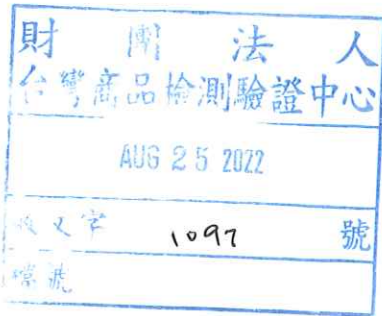 財團法人
台灣商品檢測驗證中心
AUG 25 2022
收文字 1097 號
檔號